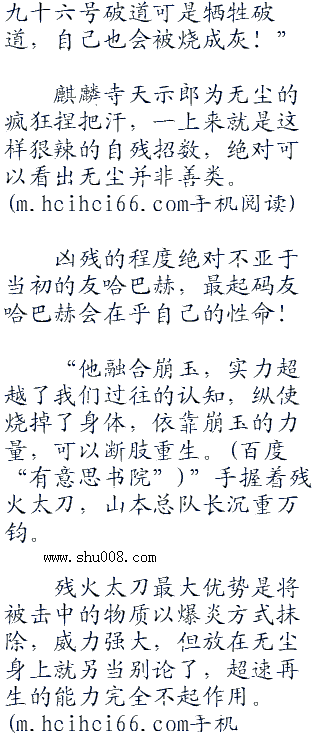 九十六号破道可是牺牲破
道，自己也会被烧成灰！”
麒麟寺天示郎为无尘的
疯狂捏把汗，一上来就是这
样狠辣的自残招数，绝对可
以看出无尘并非善类。
(m.hcihci66.com手机阅读)
凶残的程度绝对不亚于
当初的友哈巴赫，最起码友
哈巴赫会在乎自己的性命！
“他融合崩玉，实力超
越了我们过往的认知，纵使
烧掉了身体，依靠崩玉的力
量，可以断肢重生。(百度
“有意思书院”)”手握着残
火太刀，山本总队长沉重万
钧。
www.shu008.com
残火太刀最大优势是将
被击中的物质以爆炎方式抹
除，威力强大，但放在无尘
身上就另当别论了，超速再
生的能力完全不起作用。
(m.hcihci66.com手机